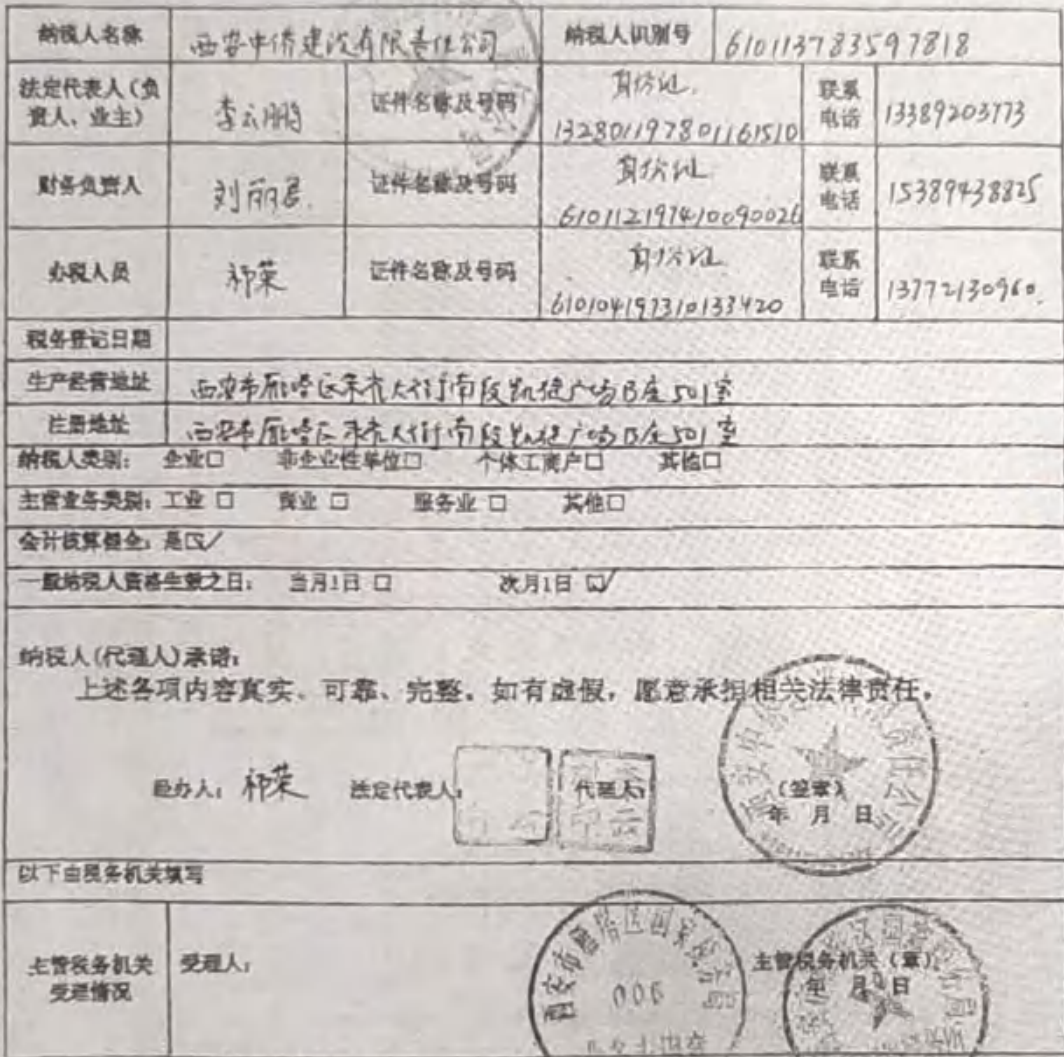 纳税人名称 西安中侨建设有限责任公司 纳税人识别号 610113783597818
法定代表人(负责人、业主) 李云鹏 证件名称及号码 身份证 132801197801161510 联系电话 13389203773
财务负责人 刘丽君 证件名称及号码 身份证 610112197410090026 联系电话 15389438825
办税人员 祁荣 证件名称及号码 身份证 610104197310133420 联系电话 13772130960
税务登记日期
生产经营地址 西安市雁塔区朱雀大街南段凯德广场B座501室
注册地址 西安市雁塔区朱雀大街南段凯德广场B座501室
纳税人类别: 企业□ 非企业性单位□ 个体工商户□ 其他□
主营业务类别: 工业□ 商业□ 服务业□ 其他□
会计核算健全: 是□✓
一般纳税人资格生效之日: 当月1日□ 次月1日□✓
纳税人(代理人)承诺:
上述各项内容真实、可靠、完整。如有虚假,愿意承担相关法律责任。
经办人: 祁荣 法定代表人: 代理人: (签章)
年 月 日
以下由税务机关填写
主管税务机关受理情况 受理人: 主管税务机关(章)
年 月 日
西安市雁塔区国家税务局
006